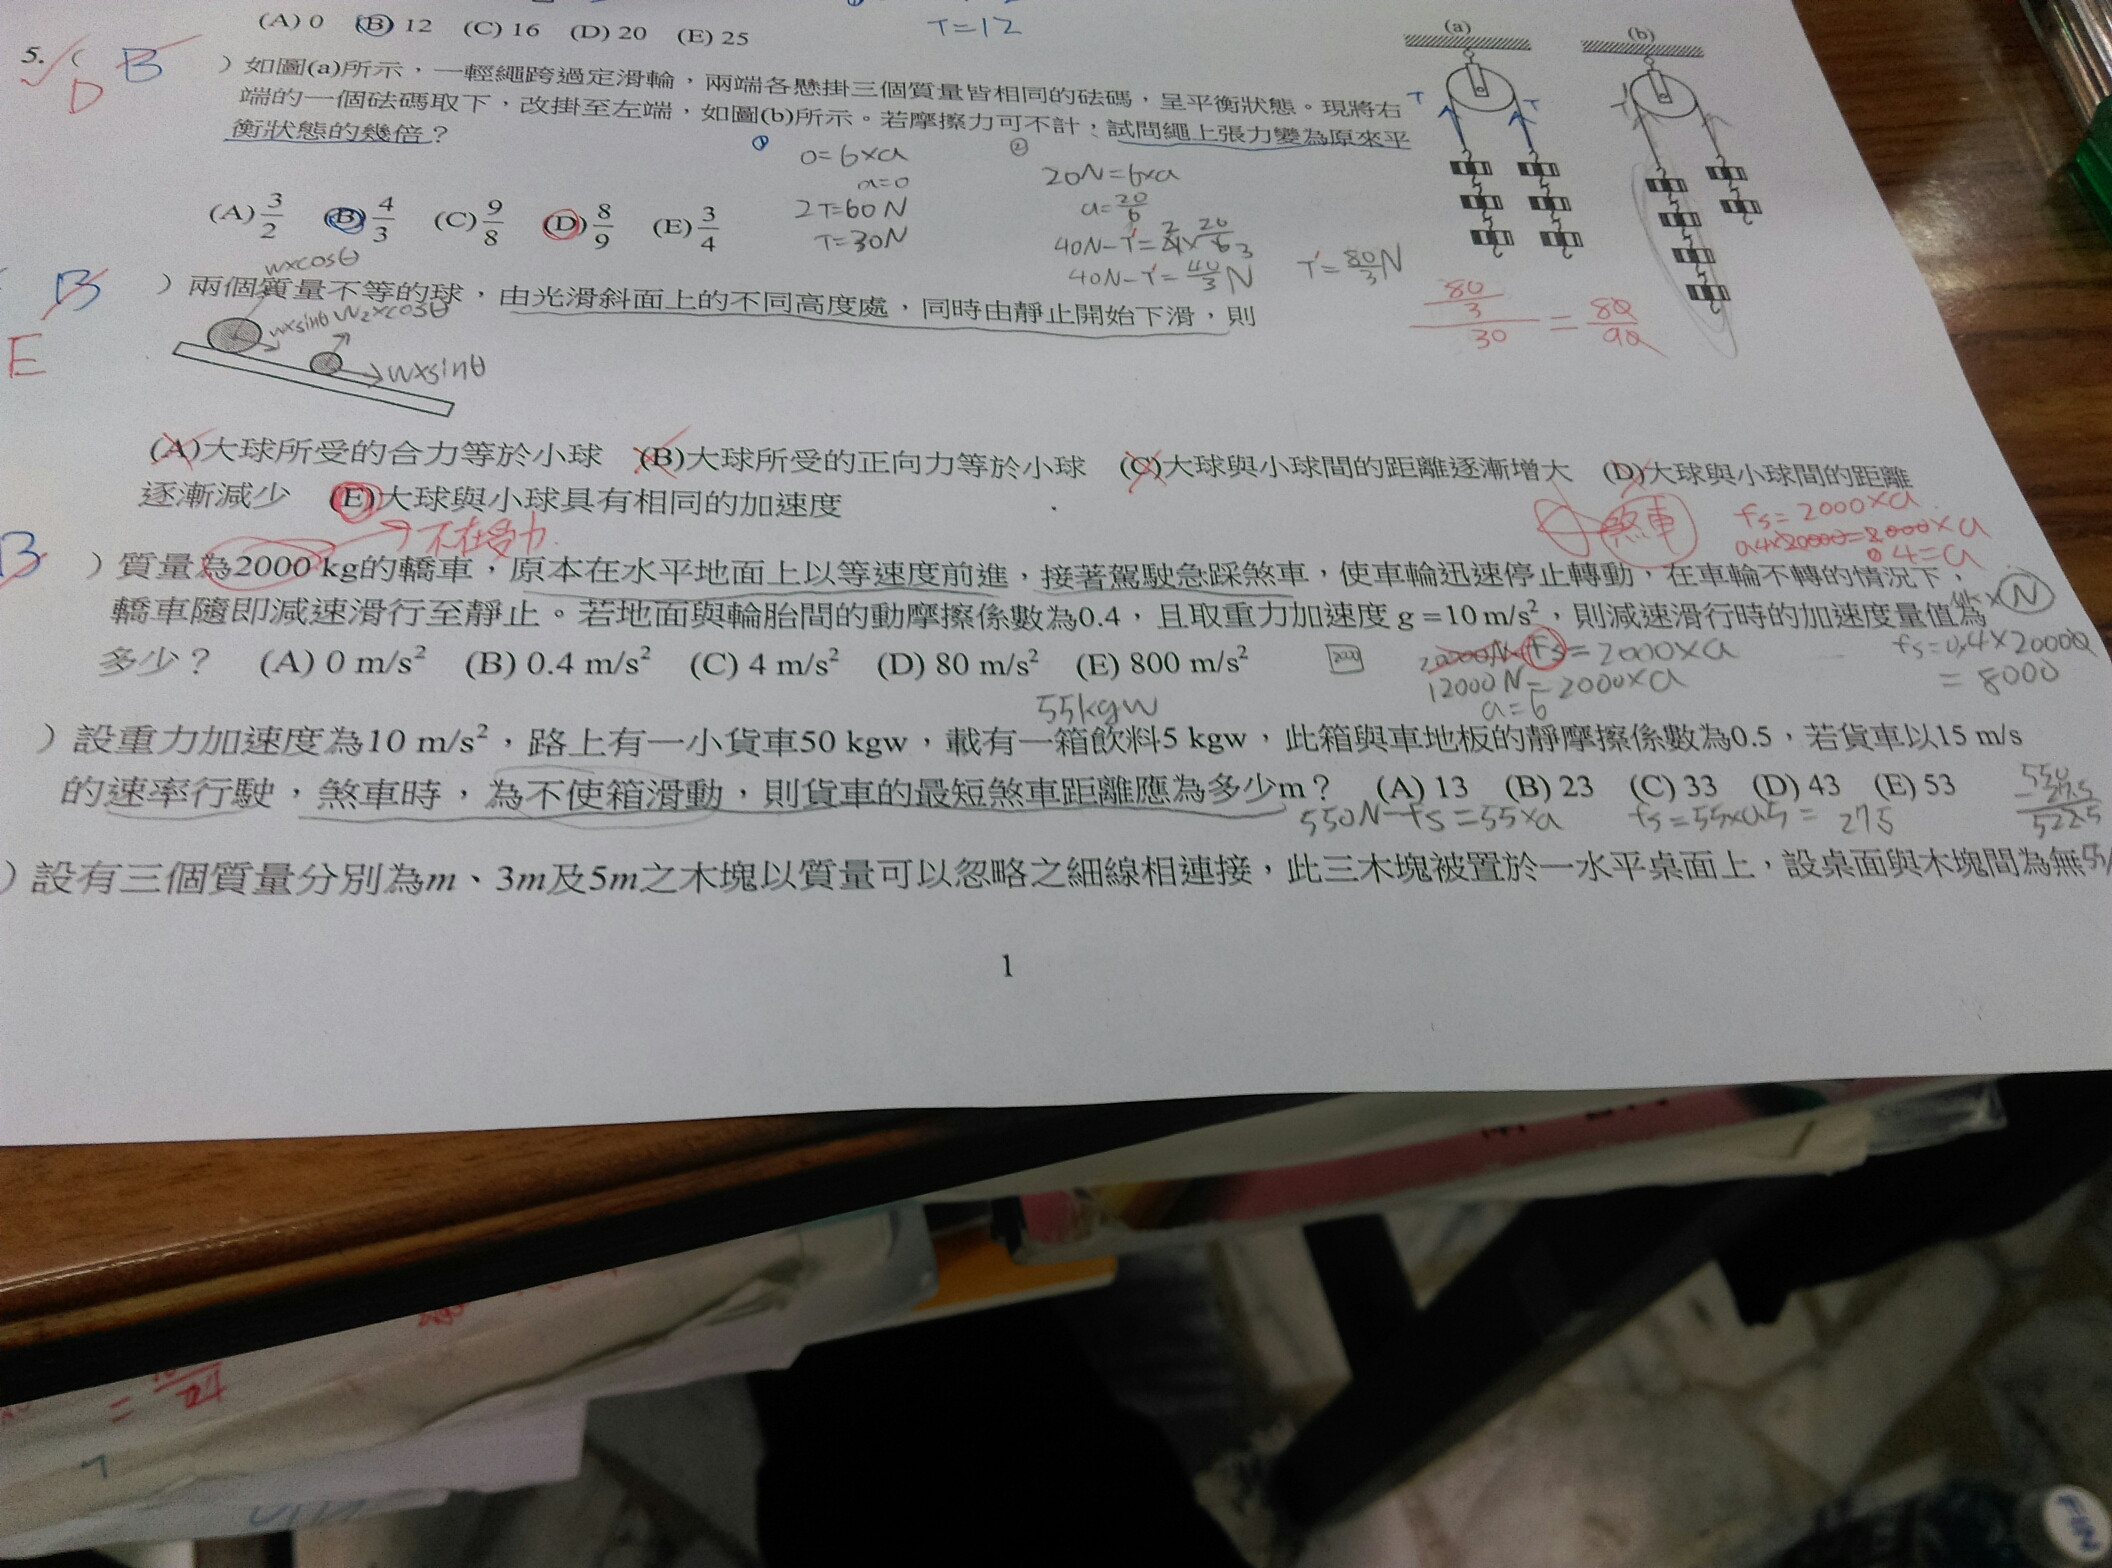 (A) 0 (B) 12 (C) 16 (D) 20 (E) 25
T=12
(a)
(b)
5. (
D
B
)如圖(a)所示，一輕繩跨過定滑輪，兩端各懸掛三個質量皆相同的砝碼，呈平衡狀態。現將右
端的一個砝碼取下，改掛至左端，如圖(b)所示。若摩擦力可不計，試問繩上張力變為原來平
衡狀態的幾倍？
T
T
①
0=6×a
a=0
2T=60N
T=30N
②
20N=6×a
a=20/6
40N-T'=4×20/6
40N-T'=40/3 N
T'=80/3 N
80/3 / 30 = 80/90
(A) 3/2 (B) 4/3 (C) 9/8 (D) 8/9 (E) 3/4
B
E
w×cosθ
)兩個質量不等的球，由光滑斜面上的不同高度處，同時由靜止開始下滑，則
w×sinθ W₂×cosθ
w×sinθ
(A)大球所受的合力等於小球 (B)大球所受的正向力等於小球 (C)大球與小球間的距離逐漸增大 (D)大球與小球間的距離
逐漸減少 (E)大球與小球具有相同的加速度
不在受力
煞車
fs=2000×a
4=a
B
)質量為2000 kg的轎車，原本在水平地面上以等速度前進，接著駕駛急踩煞車，使車輪迅速停止轉動，在車輪不轉的情況下，
轎車隨即減速滑行至靜止。若地面與輪胎間的動摩擦係數為0.4，且取重力加速度 g =10 m/s²，則減速滑行時的加速度量值為
多少？ (A) 0 m/s² (B) 0.4 m/s² (C) 4 m/s² (D) 80 m/s² (E) 800 m/s²
20000N-fs=2000×a
12000N=2000×a
a=6
fs=0.4×20000
=8000
55kgw
)設重力加速度為10 m/s²，路上有一小貨車50 kgw，載有一箱飲料5 kgw，此箱與車地板的靜摩擦係數為0.5，若貨車以15 m/s
的速率行駛，煞車時，為不使箱滑動，則貨車的最短煞車距離應為多少m？ (A) 13 (B) 23 (C) 33 (D) 43 (E) 53
550N-fs=55×a
fs=55×0.5= 275
5225
)設有三個質量分別為m、3m及5m之木塊以質量可以忽略之細線相連接，此三木塊被置於一水平桌面上，設桌面與木塊間為無
1